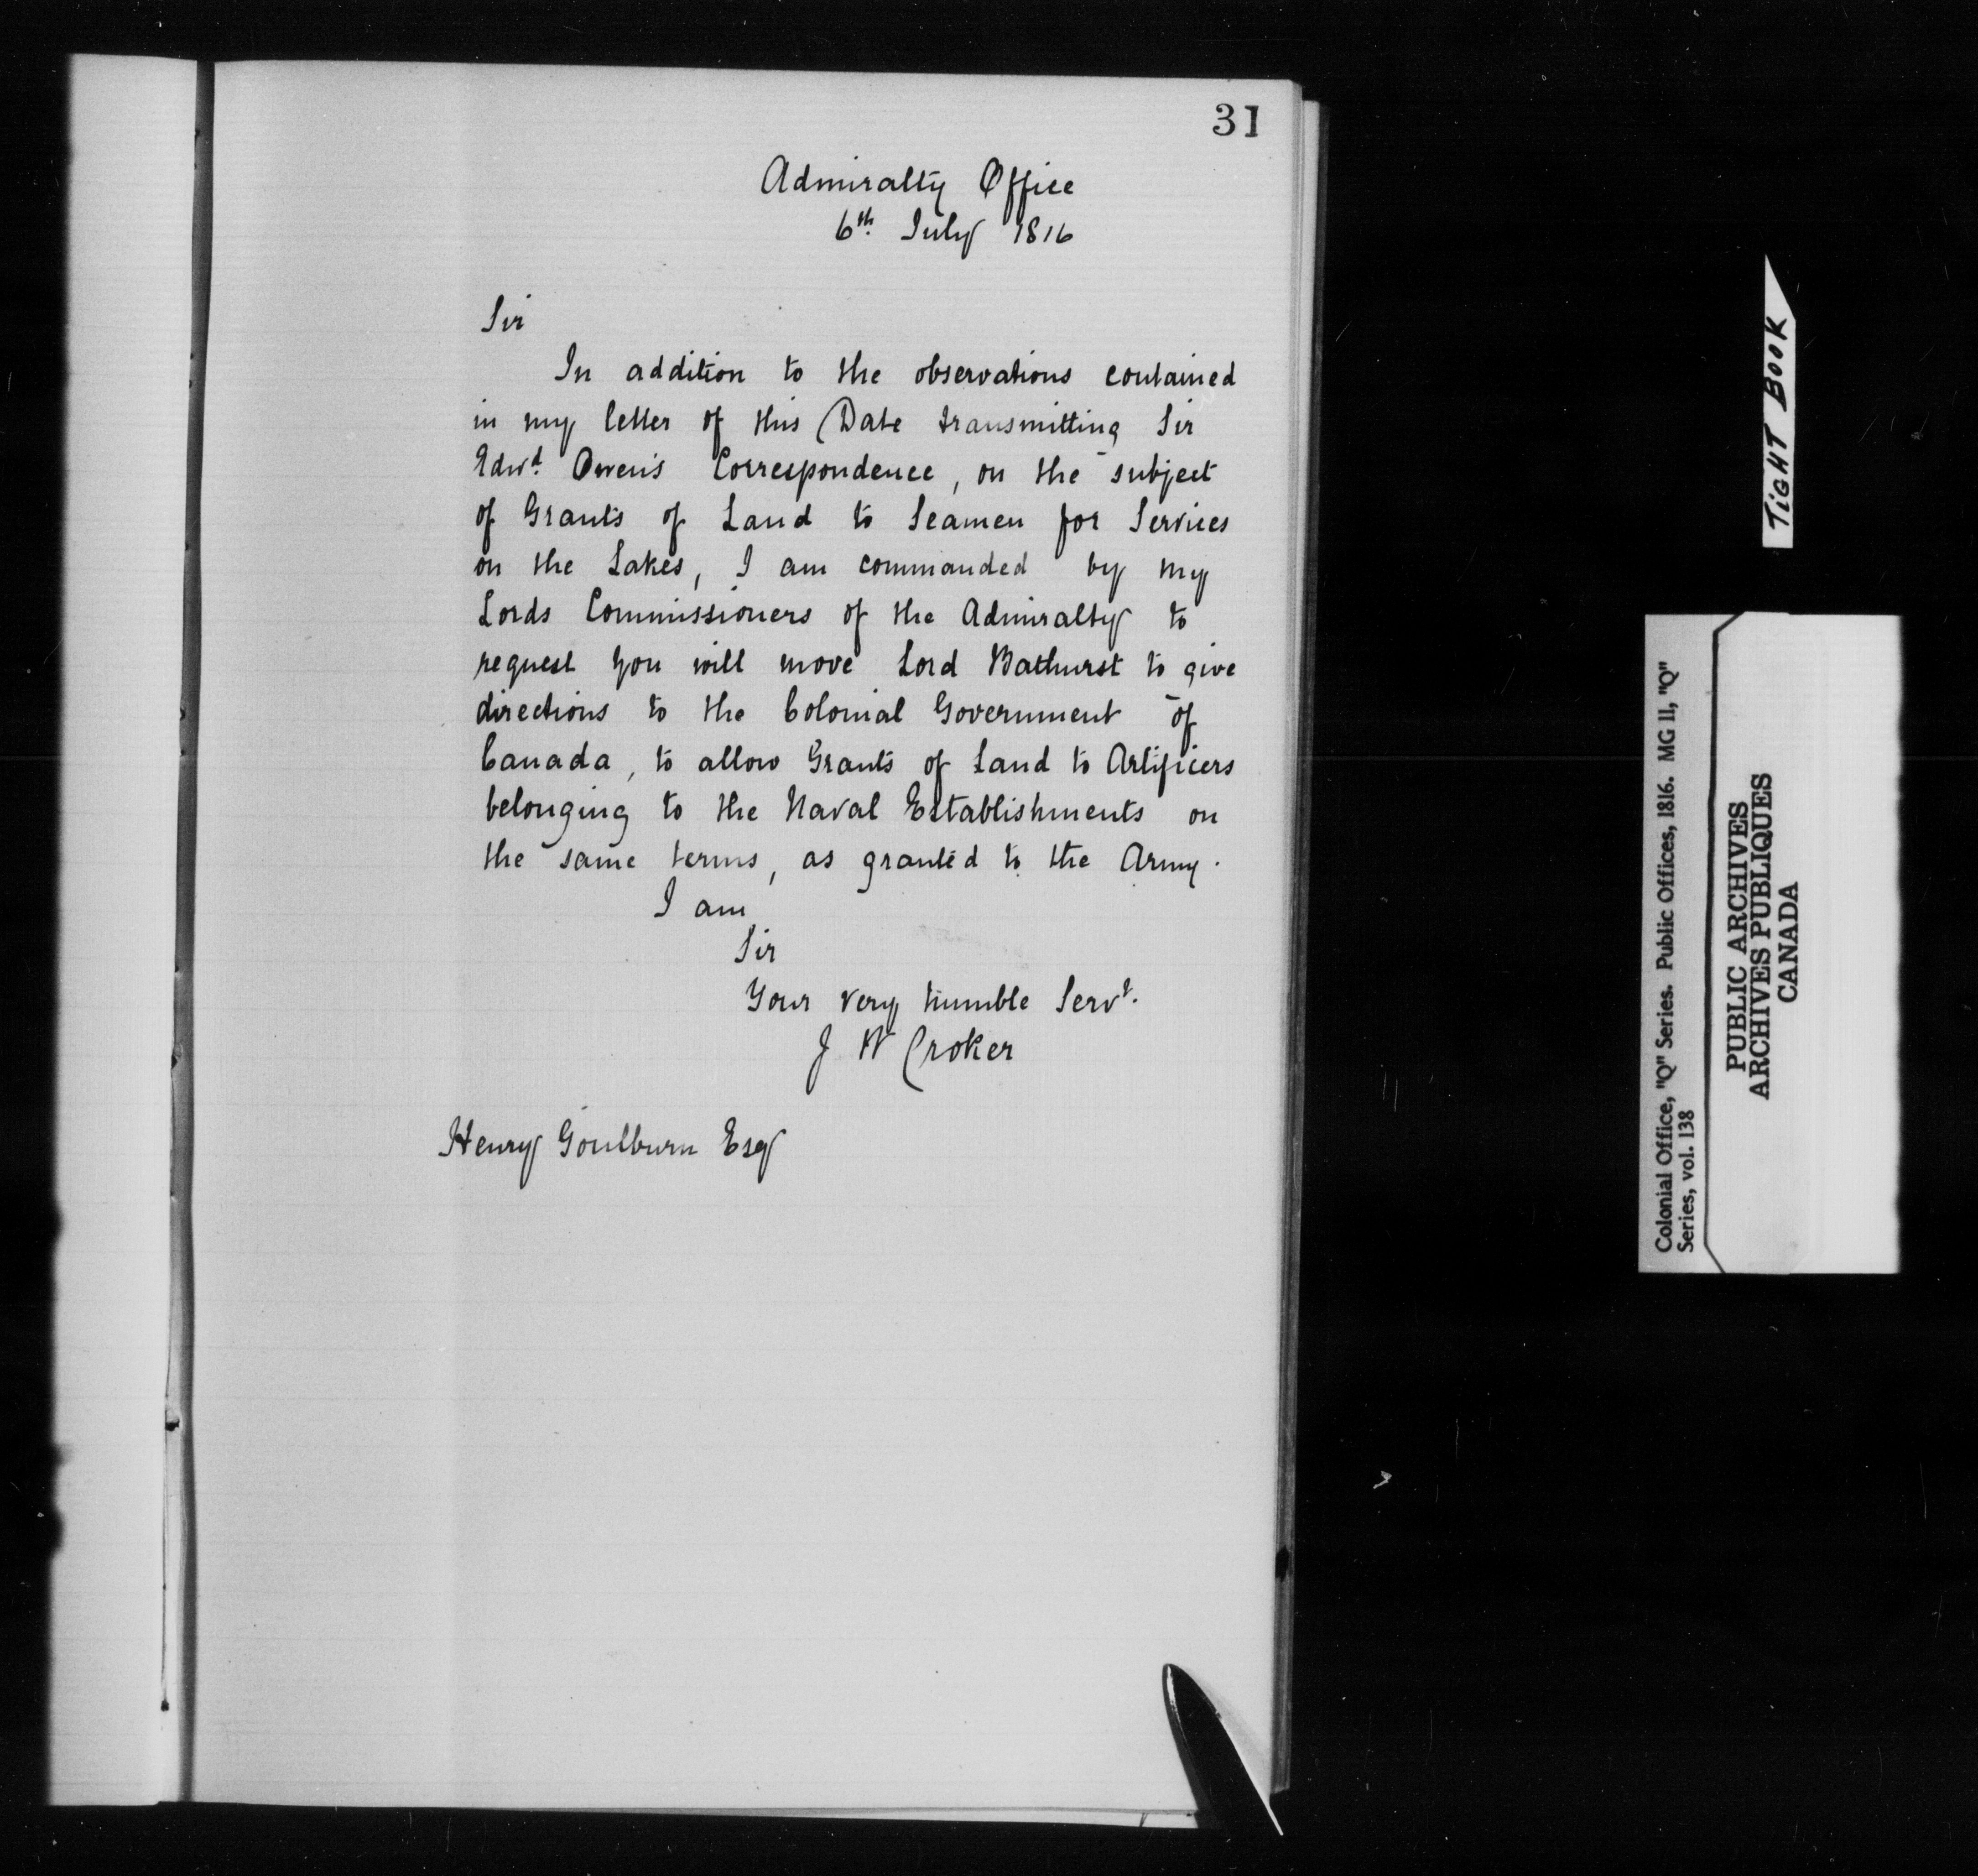 31
Admiralty Office
6th. July 1816
Sir
In addition to the observations contained
in my letter of this Date transmitting Sir
Edwd. Owen's Correspondence, on the subject
of Grants of Land to Seamen for Services
on the Lakes, I am commanded by my
Lords Commissioners of the Admiralty to
request you will move Lord Bathurst to give
directions to the Colonial Government of
Canada, to allow Grants of Land to Artificers
belonging to the Naval Establishments on
the same terms, as granted to the Army.
I am
Sir
Your very humble Servt.
J W Croker
Henry Goulburn Esq
TIGHT BOOK
Colonial Office, "Q" Series. Public Offices, 1816. MG 11, "Q"
Series, vol. 138
PUBLIC ARCHIVES
ARCHIVES PUBLIQUES
CANADA